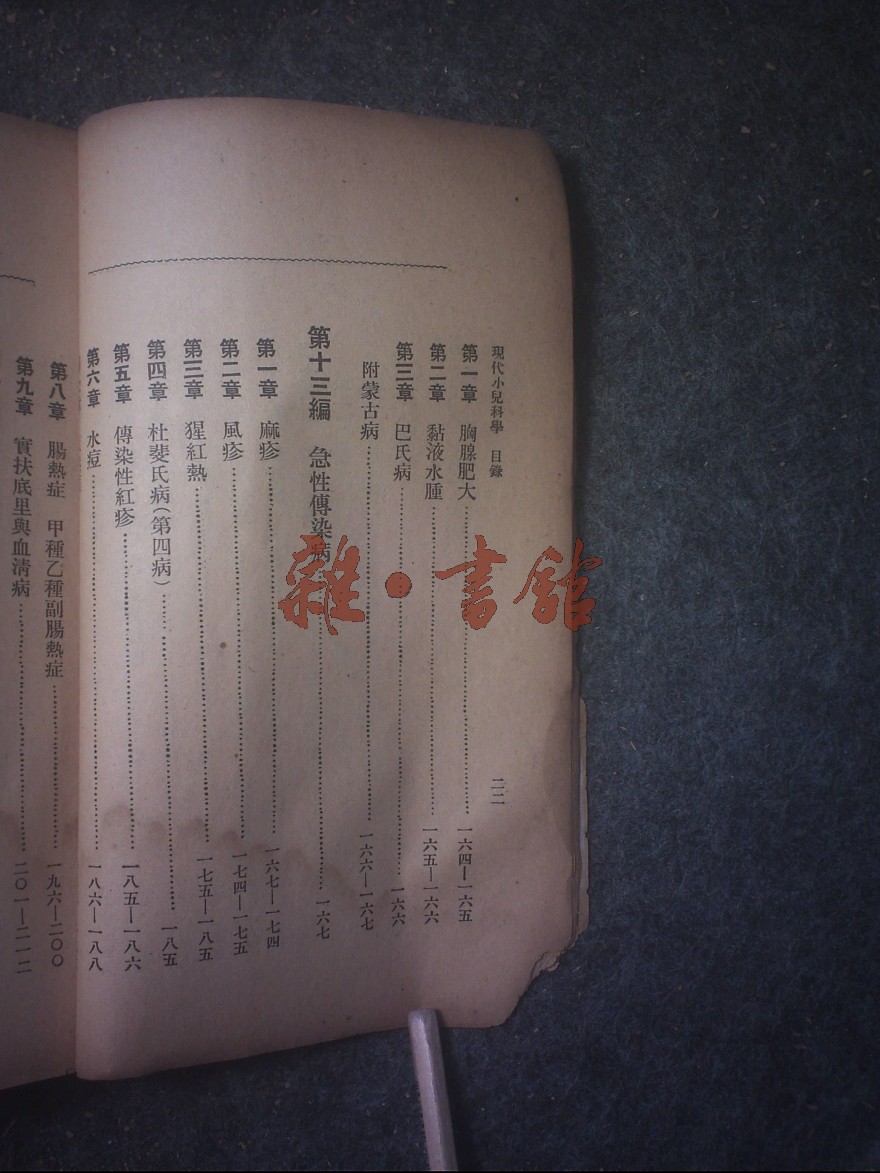 現代小兒科學 目錄 二二
第一章 胸腺肥大 一六四—一六五
第二章 黏液水腫 一六五—一六六
第三章 巴氏病 一六六
附蒙古病 一六六—一六七
第十三編 急性傳染病 一六七
第一章 麻疹 一六七—一七四
第二章 風疹 一七四—一七五
第三章 猩紅熱 一七五—一八五
第四章 杜斐氏病(第四病) 一八五
第五章 傳染性紅疹 一八五—一八六
第六章 水痘 一八六—一八八
第八章 腸熱症 甲種乙種副腸熱症 一九六—二〇〇
第九章 實扶底里與血淸病 二〇一—二一二
雜·書館